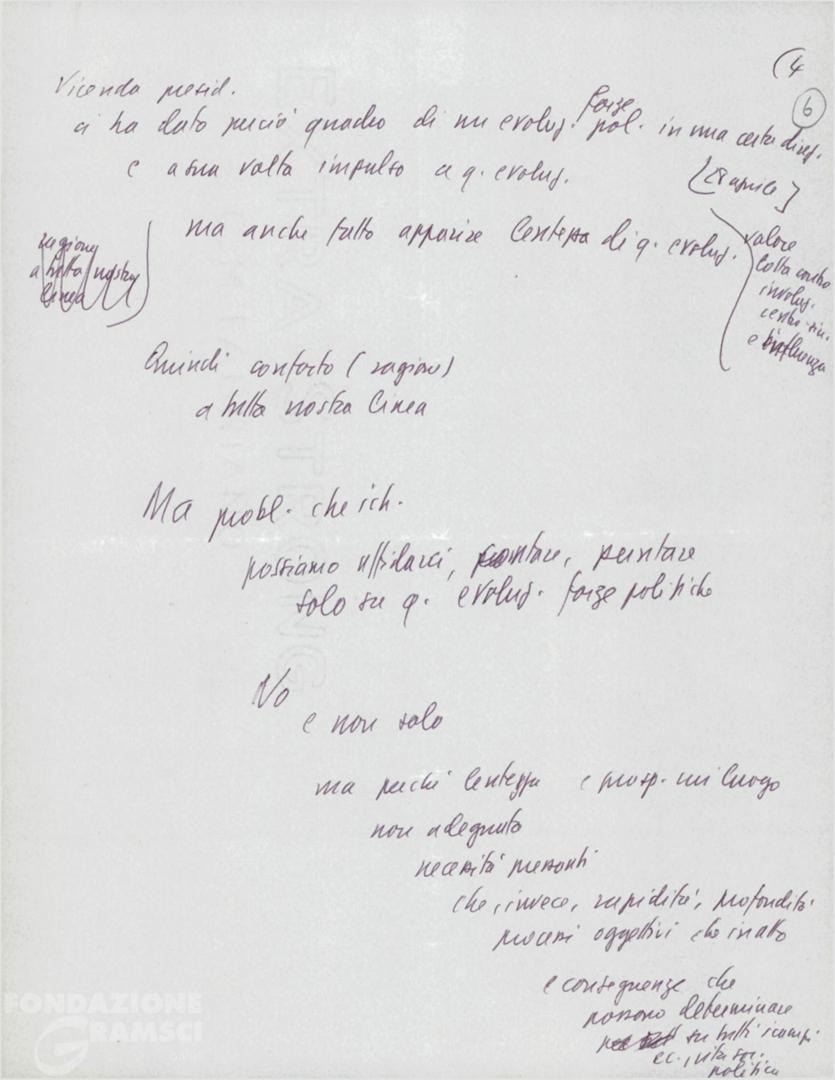 (4
6
Vicenda presid.
ci ha dato perciò quadro di un evoluz. forze pol. in una certa direz.
e a sua volta impulso a q. evoluz.
ma anche fatto apparire lentezza di q. evoluz.
valore
lotta contro
involuz.
centro-sin.
e influenza
ragione
a tutta nostra
linea
Quindi conforto (ragione)
a tutta nostra linea
Ma probl. che
possiamo affidarci, puntare
solo su q. evoluz. forze politiche
No
e non solo
ma perché lentezza e prosp. un luogo
non adeguata
necessità pressanti
che, invece, rapidità, profondità
processi oggettivi che in atto
e conseguenze che
possono determinare
su tutti i campi
ec., vita soc.
politica
FONDAZIONE
GRAMSCI